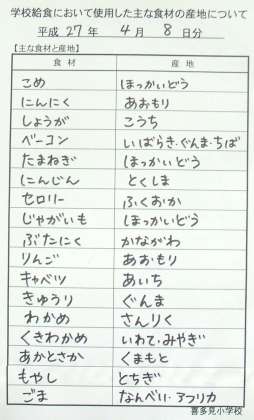 学校給食において使用した主な食材の産地について
平成 27 年 4 月 8 日分
【主な食材と産地】
食材 産地
こめ ほっかいどう
にんにく あおもり
しょうが こうち
ベーコン いばらき・ぐんま・ちば
たまねぎ ほっかいどう
にんじん とくしま
セロリー ふくおか
じゃがいも ほっかいどう
ぶたにく かながわ
りんご あおもり
キャベツ あいち
きゅうり ぐんま
わかめ さんりく
くきわかめ いわて・みやぎ
あかとさか くまもと
もやし とちぎ
ごま なんべい・アフリカ
喜多見小学校